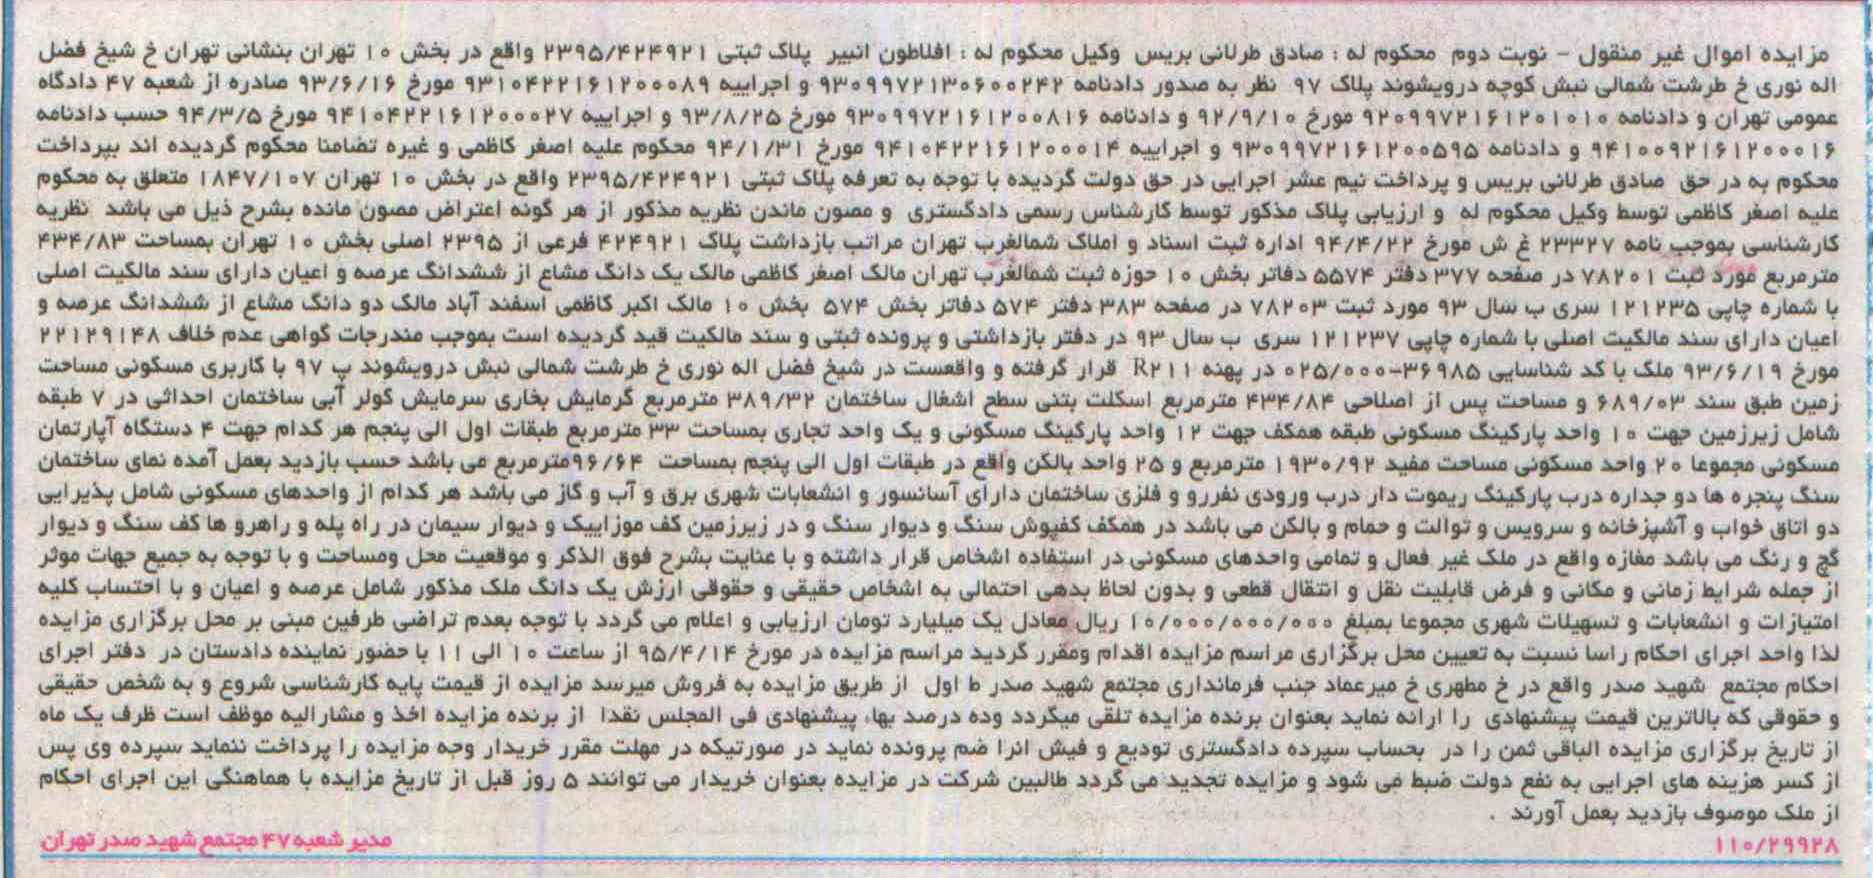 مزایده اموال غیر منقول - نوبت دوم محکوم له : صادق طرلانی بریس وکیل محکوم له : افلاطون انبیر پلاک ثبتی ۲۳۹۵/۴۲۴۹۲۱ واقع در بخش ۱۰ تهران بنشانی تهران خ شیخ فضل
اله نوری خ طرشت شمالی نبش کوچه درویشوند پلاک ۹۷ نظر به صدور دادنامه ۹۳۰۹۹۷۲۱۳۰۶۰۰۲۴۲ و اجراییه ۹۳۱۰۴۲۲۱۶۱۲۰۰۰۸۹ مورخ ۹۳/۶/۱۶ صادره از شعبه ۴۷ دادگاه
عمومی تهران و دادنامه ۹۲۰۹۹۷۲۱۶۱۲۰۱۰۱۰ مورخ ۹۲/۹/۱۰ و دادنامه ۹۳۰۹۹۷۲۱۶۱۲۰۰۸۱۶ مورخ ۹۳/۸/۲۵ و اجراییه ۹۴۱۰۴۲۲۱۶۱۲۰۰۰۲۷ مورخ ۹۴/۳/۵ حسب دادنامه
۹۴۱۰۰۹۲۱۶۱۲۰۰۰۱۶ و دادنامه ۹۳۰۹۹۷۲۱۶۱۲۰۰۵۹۵ و اجراییه ۹۴۱۰۴۲۲۱۶۱۲۰۰۰۱۴ مورخ ۹۴/۱/۳۱ محکوم علیه اصغر کاظمی و غیره تضامنا محکوم گردیده اند بپرداخت
محکوم به در حق صادق طرلانی بریس و پرداخت نیم عشر اجرایی در حق دولت گردیده با توجه به تعرفه پلاک ثبتی ۲۳۹۵/۴۲۴۹۲۱ واقع در بخش ۱۰ تهران ۱۸۴۷/۱۰۷ متعلق به محکوم
علیه اصغر کاظمی توسط وکیل محکوم له و ارزیابی پلاک مذکور توسط کارشناس رسمی دادگستری و مصون ماندن نظریه مذکور از هر گونه اعتراض مصون مانده بشرح ذیل می باشد نظریه
کارشناسی بموجب نامه ۲۳۳۲۷ غ ش مورخ ۹۴/۴/۲۲ اداره ثبت اسناد و املاک شمالغرب تهران مراتب بازداشت پلاک ۴۲۴۹۲۱ فرعی از ۲۳۹۵ اصلی بخش ۱۰ تهران بمساحت ۴۳۴/۸۳
مترمربع مورد ثبت ۷۸۲۰۱ در صفحه ۳۷۷ دفتر ۵۵۷۴ دفاتر بخش ۱۰ حوزه ثبت شمالغرب تهران مالک اصغر کاظمی مالک یک دانگ مشاع از ششدانگ عرصه و اعیان دارای سند مالکیت اصلی
با شماره چاپی ۱۲۱۲۳۵ سری ب سال ۹۳ مورد ثبت ۷۸۲۰۳ در صفحه ۳۸۳ دفتر ۵۷۴ دفاتر بخش ۵۷۴ بخش ۱۰ مالک اکبر کاظمی اسفند آباد مالک دو دانگ مشاع از ششدانگ عرصه و
اعیان دارای سند مالکیت اصلی با شماره چاپی ۱۲۱۲۳۷ سری ب سال ۹۳ در دفتر بازداشتی و پرونده ثبتی و سند مالکیت قید گردیده است بموجب مندرجات گواهی عدم خلاف ۲۲۱۲۹۱۴۸
مورخ ۹۳/۶/۱۹ ملک با کد شناسایی ۳۶۹۸۵-۰۲۵/۰۰۰ در پهنه R۲۱۱ قرار گرفته و واقعست در شیخ فضل اله نوری خ طرشت شمالی نبش درویشوند پ ۹۷ با کاربری مسکونی مساحت
زمین طبق سند ۶۸۹/۰۳ و مساحت پس از اصلاحی ۴۳۴/۸۴ مترمربع اسکلت بتنی سطح اشغال ساختمان ۳۸۹/۳۲ مترمربع گرمایش بخاری سرمایش کولر آبی ساختمان احداثی در ۷ طبقه
شامل زیرزمین جهت ۱۰ واحد پارکینگ مسکونی طبقه همکف جهت ۱۲ واحد پارکینگ مسکونی و یک واحد تجاری بمساحت ۳۳ مترمربع طبقات اول الی پنجم هر کدام جهت ۴ دستگاه آپارتمان
مسکونی مجموعا ۲۰ واحد مسکونی مساحت مفید ۱۹۳۰/۹۲ مترمربع و ۲۵ واحد بالکن واقع در طبقات اول الی پنجم بمساحت ۹۶/۶۴مترمربع می باشد حسب بازدید بعمل آمده نمای ساختمان
سنگ پنجره ها دو جداره درب پارکینگ ریموت دار درب ورودی نفررو و فلزی ساختمان دارای آسانسور و انشعابات شهری برق و آب و گاز می باشد هر کدام از واحدهای مسکونی شامل پذیرایی
دو اتاق خواب و آشپزخانه و سرویس و توالت و حمام و بالکن می باشد در همکف کفپوش سنگ و دیوار سنگ و در زیرزمین کف موزاییک و دیوار سیمان در راه پله و راهرو ها کف سنگ و دیوار
گچ و رنگ می باشد مغازه واقع در ملک غیر فعال و تمامی واحدهای مسکونی در استفاده اشخاص قرار داشته و با عنایت بشرح فوق الذکر و موقعیت محل ومساحت و با توجه به جمیع جهات موثر
از جمله شرایط زمانی و مکانی و فرض قابلیت نقل و انتقال قطعی و بدون لحاظ بدهی احتمالی به اشخاص حقیقی و حقوقی ارزش یک دانگ ملک مذکور شامل عرصه و اعیان و با احتساب کلیه
امتیازات و انشعابات و تسهیلات شهری مجموعا بمبلغ ۱۰/۰۰۰/۰۰۰/۰۰۰ ریال معادل یک میلیارد تومان ارزیابی و اعلام می گردد با توجه بعدم تراضی طرفین مبنی بر محل برگزاری مزایده
لذا واحد اجرای احکام راسا نسبت به تعیین محل برگزاری مراسم مزایده اقدام ومقرر گردید مراسم مزایده در مورخ ۹۵/۴/۱۴ از ساعت ۱۰ الی ۱۱ با حضور نماینده دادستان در دفتر اجرای
احکام مجتمع شهید صدر واقع در خ مطهری خ میرعماد جنب فرمانداری مجتمع شهید صدر ط اول از طریق مزایده به فروش میرسد مزایده از قیمت پایه کارشناسی شروع و به شخص حقیقی
و حقوقی که بالاترین قیمت پیشنهادی را ارائه نماید بعنوان برنده مزایده تلقی میگردد وده درصد بهاء پیشنهادی فی المجلس نقدا از برنده مزایده اخذ و مشارالیه موظف است ظرف یک ماه
از تاریخ برگزاری مزایده الباقی ثمن را در بحساب سپرده دادگستری تودیع و فیش انرا ضم پرونده نماید در صورتیکه در مهلت مقرر خریدار وجه مزایده را پرداخت ننماید سپرده وی پس
از کسر هزینه های اجرایی به نفع دولت ضبط می شود و مزایده تجدید می گردد طالبین شرکت در مزایده بعنوان خریدار می توانند ۵ روز قبل از تاریخ مزایده با هماهنگی این اجرای احکام
از ملک موصوف بازدید بعمل آورند .
۱۱۰/۲۹۹۲۸ مدیر شعبه ۴۷ مجتمع شهید صدر تهران